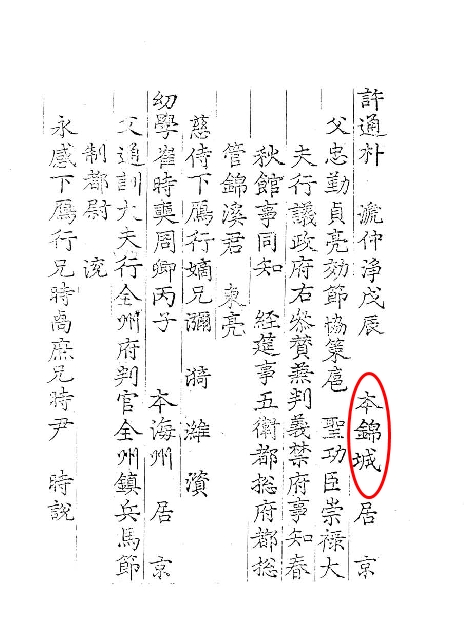 許通朴 仲淨戊辰 本錦城居 京
父忠勤貞亮効節協策扈 聖功臣崇祿大
夫行議政府右參賛兼判義禁府事知春
秋館事同知 經筵事五衛都揔府都揔
管錦溪君 東亮
慈侍下鴈行嫡兄瀰 漪 濰 濱
幼學崔時奭周卿丙子 本海州 居 京
父通訓大夫行全州府判官全州鎮兵馬節
制都尉 流
永感下鴈行兄時卨庶兄時尹 時說